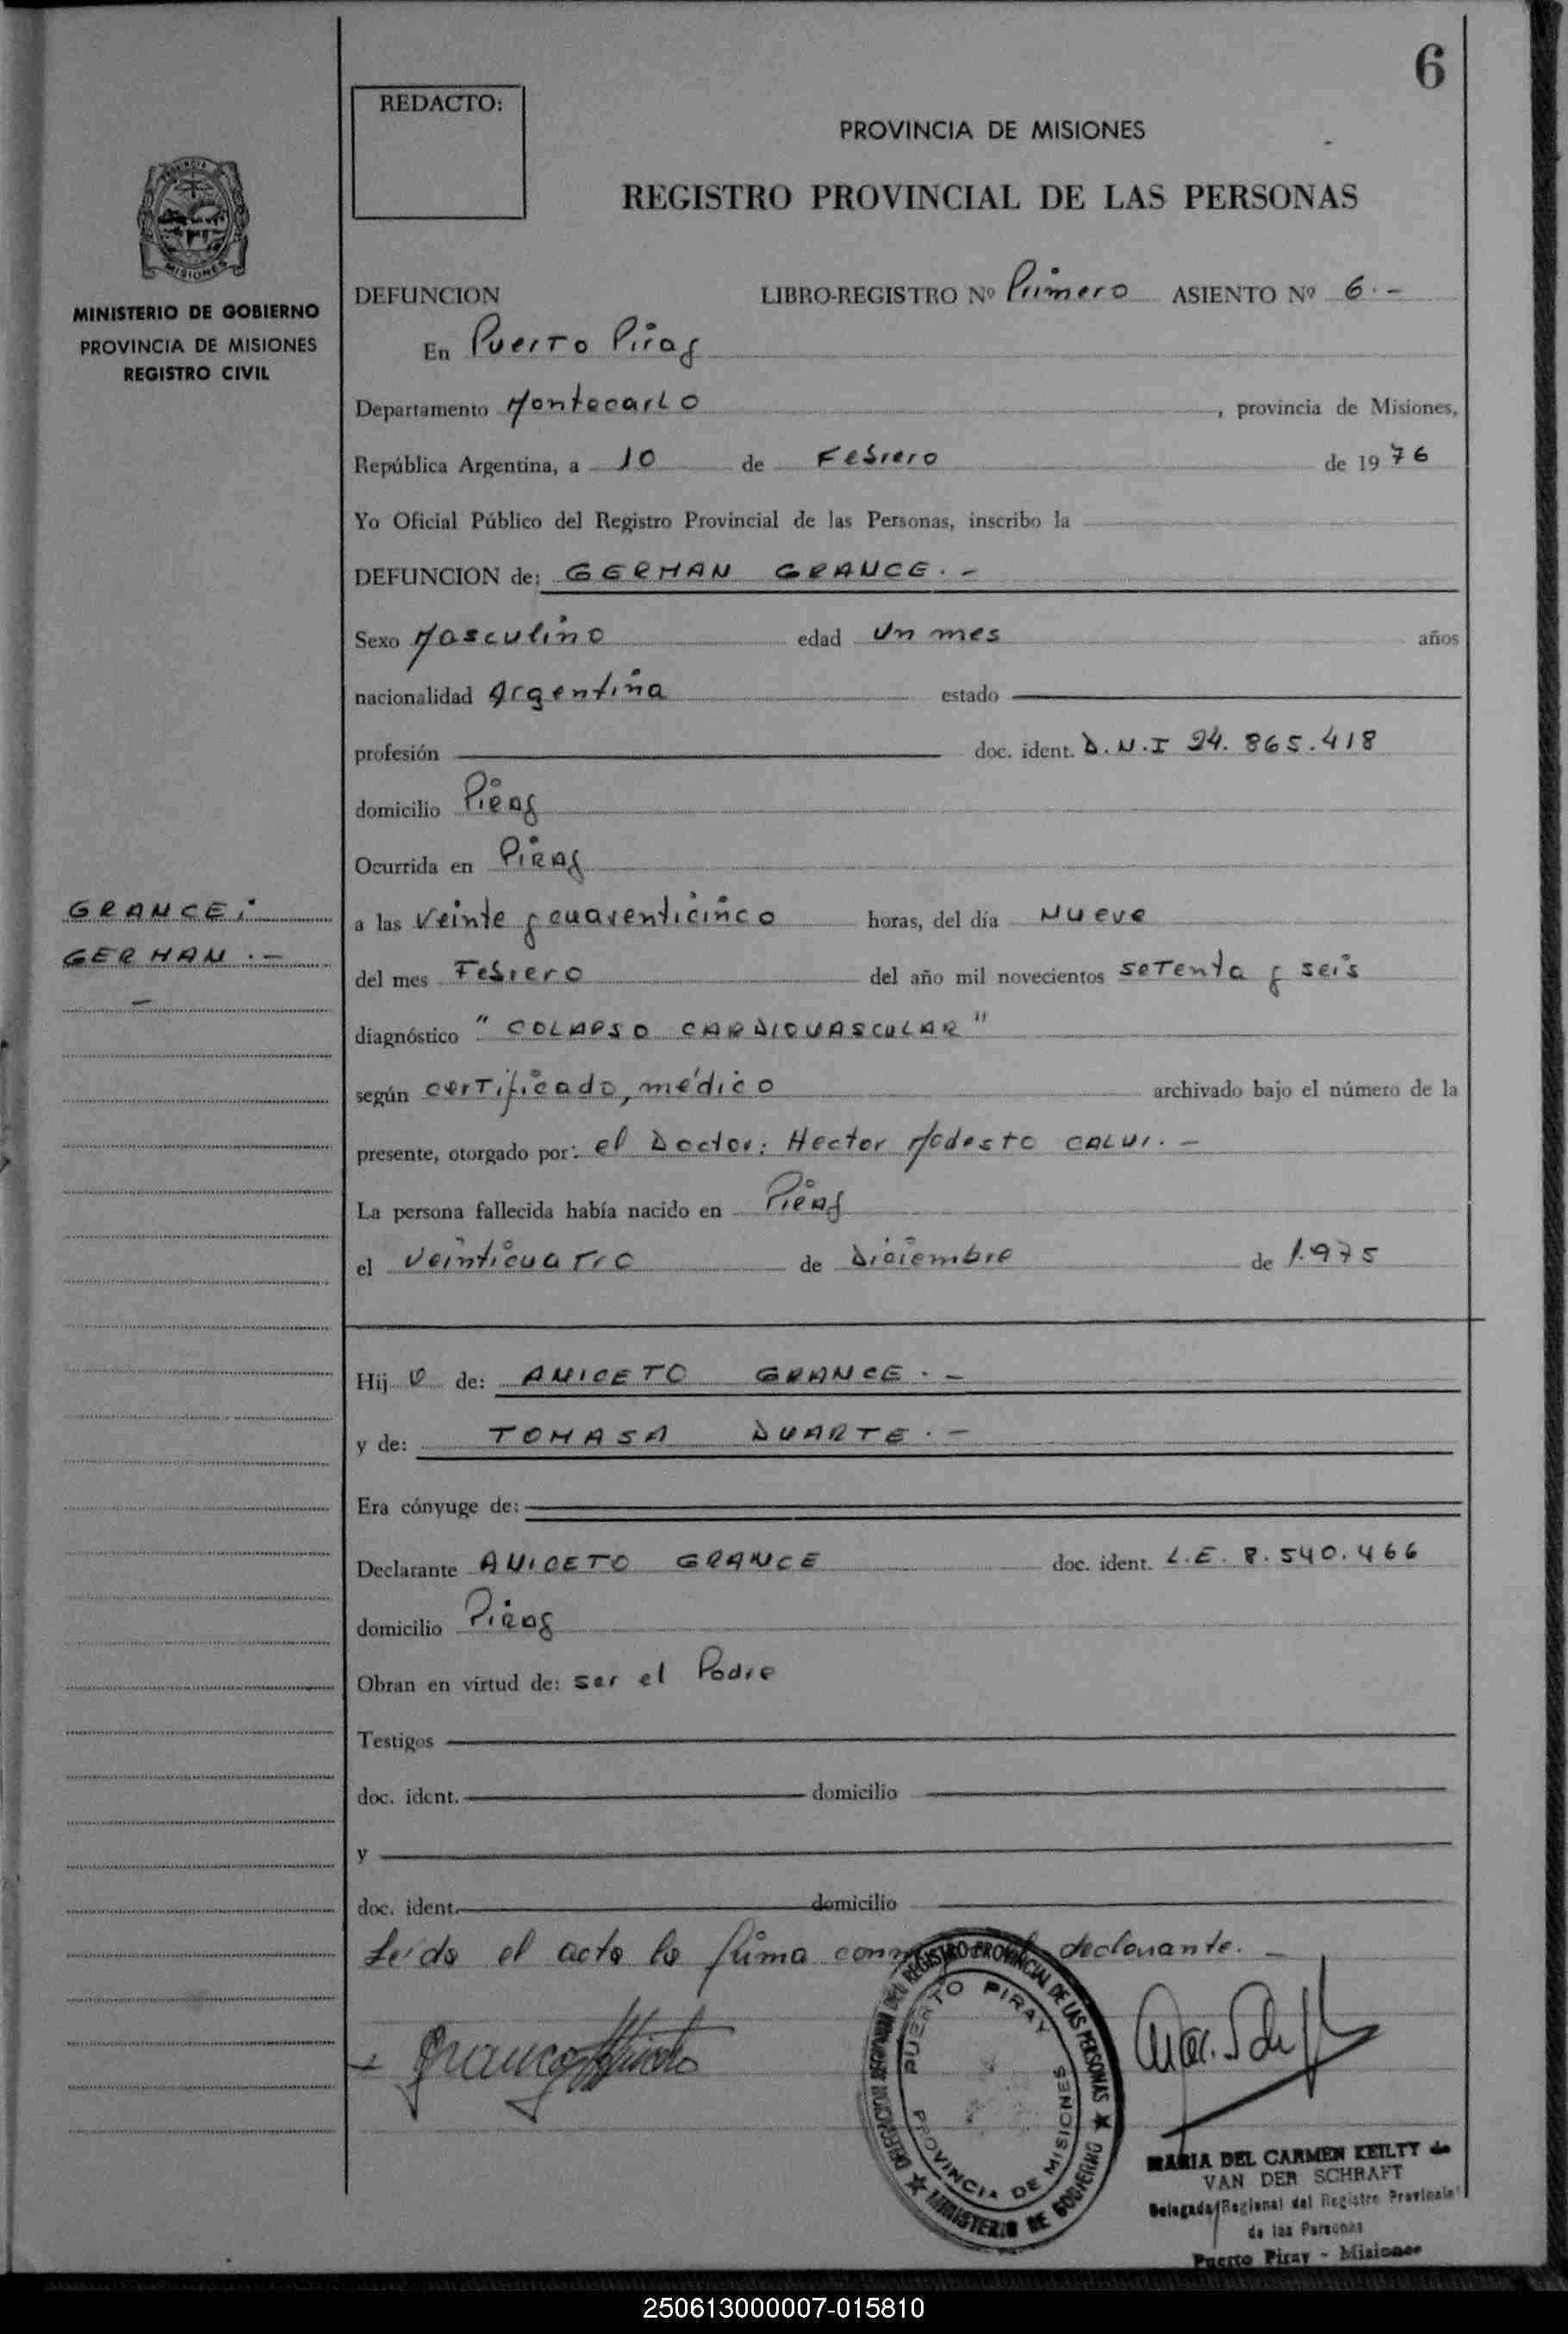 6
REDACTO:
PROVINCIA DE MISIONES
REGISTRO PROVINCIAL DE LAS PERSONAS
PROVINCIA
MISIONES
MINISTERIO DE GOBIERNO
PROVINCIA DE MISIONES
REGISTRO CIVIL
DEFUNCION LIBRO-REGISTRO Nº Primero ASIENTO Nº 6.-
En Puerto Piray
Departamento Montecarlo, provincia de Misiones,
República Argentina, a 10 de Febrero de 1976
Yo Oficial Público del Registro Provincial de las Personas, inscribo la
DEFUNCION de: GERMAN GRANCE.-
Sexo Masculino edad Un mes años
nacionalidad Argentina estado
profesión doc. ident. D.N.I 24.865.418
domicilio Piray
Ocurrida en Piray
GRANCE;
GERMAN.-
-
a las Veinte y cuarenticinco horas, del día Nueve
del mes Febrero del año mil novecientos setenta y seis
diagnóstico "COLAPSO CARDIOVASCULAR"
según certificado, médico archivado bajo el número de la
presente, otorgado por: el Doctor: Hector Modesto CALVI.-
La persona fallecida había nacido en Piray
el Veinticuatro de Diciembre de 1.975
Hijo de: ANICETO GRANCE.-
y de: TOMASA DUARTE.-
Era cónyuge de:
Declarante ANICETO GRANCE doc. ident. L.E. 8.540.466
domicilio Piray
Obran en virtud de: ser el Padre
Testigos
doc. ident. domicilio
y
doc. ident. domicilio
Leída el acta la firma declarante.-
DELEGACION REGIONAL DEL REGISTRO PROVINCIAL DE LAS PERSONAS ★ MINISTERIO DE GOBIERNO ★
PUERTO PIRAY
PROVINCIA DE MISIONES
MARIA DEL CARMEN KEILTY de
VAN DER SCHRAFT
Delegada Regional del Registro Provincial
de las Personas
Puerto Piray - Misiones
250613000007-015810